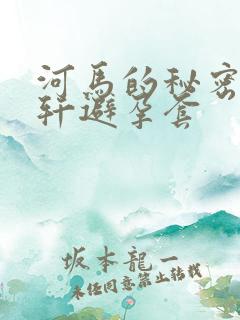 河馬的秘密
轩避孕套
坂本龍一
未经同意禁止转载